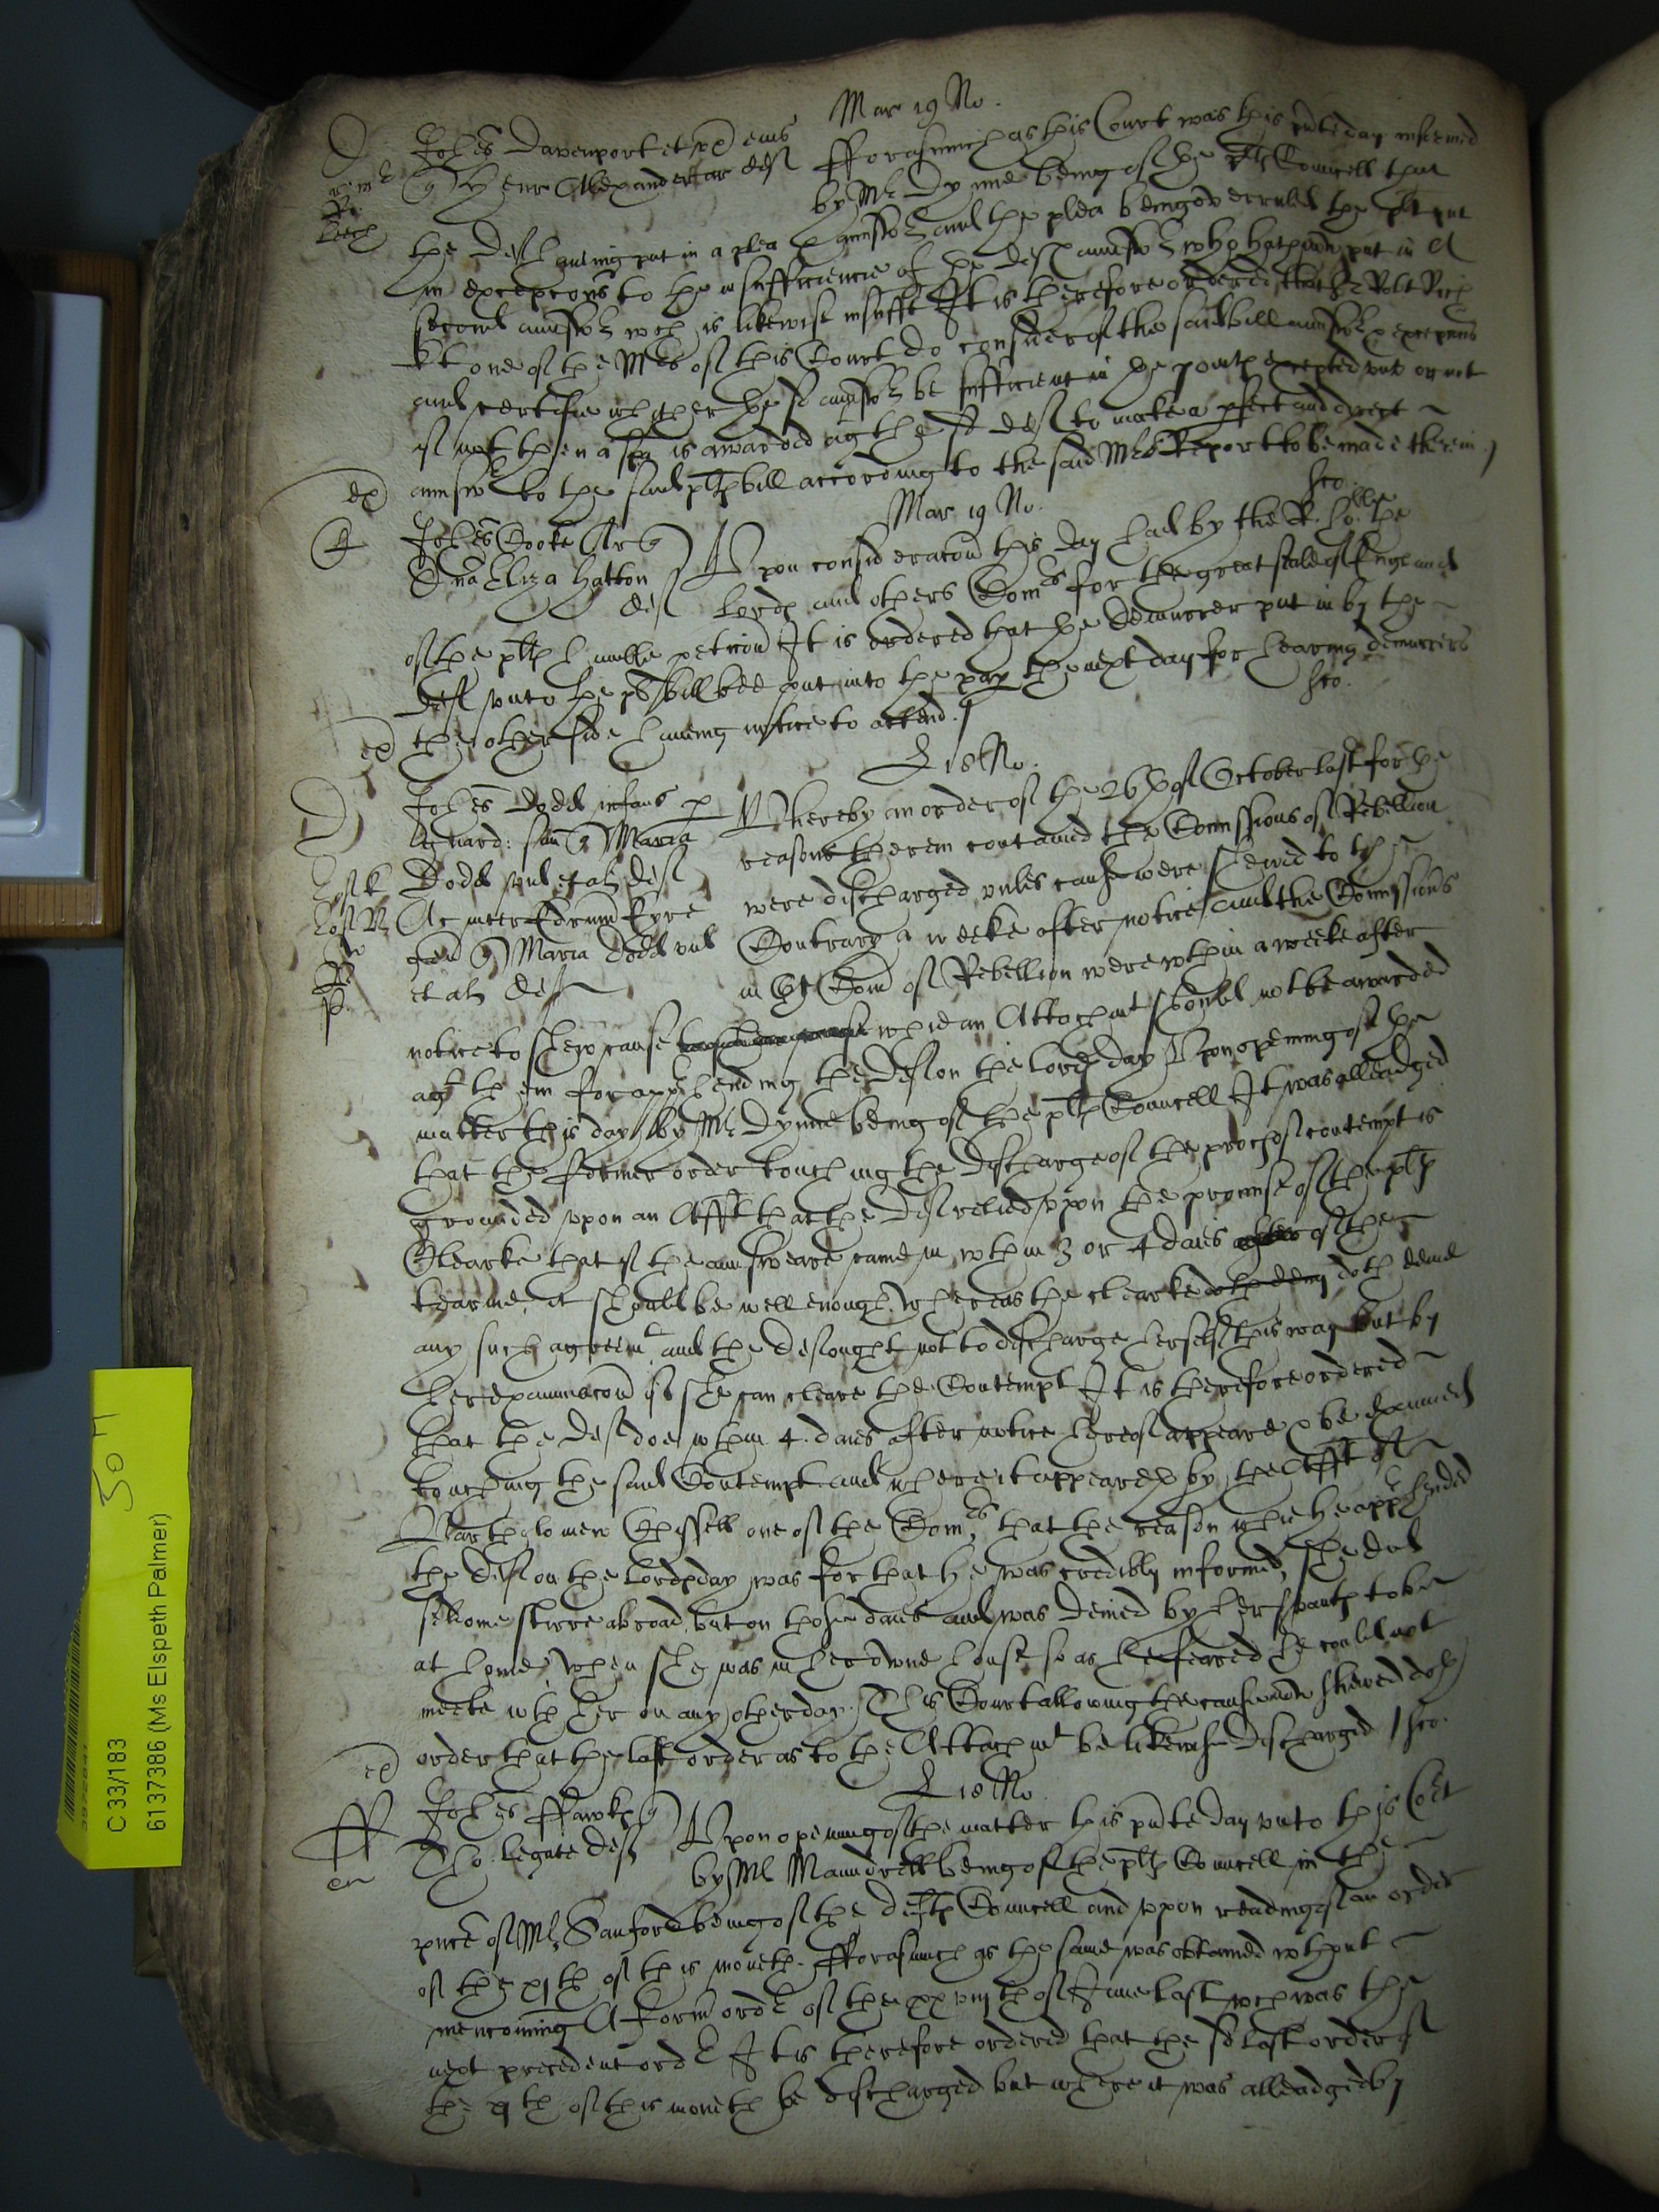 Mar 19 No.
D Johes Davenport et ux eius
Henr Alexander ar def fforasmuch as this Court was this pnte day informed
by Mr Dynne being of the plts Councell that
the deft having put in a plea & answer and the plea being overruled the plt put
in excepcons to the insufficiencie of the defts answer who hath now put in a
second answer wch is likewise insufft It is therefore ordered that Sr Robt Rich
kt one of the Mrs of this Court do consider of the said bill answer & excepcons
and certifie whether the sd answer be sufficient in the points excepted unto or not
if not then a spa is awarded agt the sd deft to make a pfect and direct
answer to the said plts bill according to the said Mrs Report to be made therein
ex
Mar 19 No.
Johes Cooke Ar
Dna Eliza Hatton
def
Upon consideracon this day had by the R. ho: the
Lords and others Comrs for the great seale of England
of the plts humble peticon It is ordered that the demurrer put in by the
deft unto the plts bill bee put into the paper the next day for hearing demurrers
the other side having notice to attend.
ex
L 18 No.
D Johes Dodd infans p
guard: suu Maria
Dodd vid et al def
Ac inter Edrum Eyre
gen Maria Dodd vid
et al def
Whereby an order of the 26th of October last for the
reasons therein contained the Comissions of Rebellion
were discharged unles cause were shewed to the
Contrary a weeke after notice and the Comissionrs
in the Com of Rebellion were wthin a weeke after
notice to shew cause whie an Attachmt should not be awarded
agt them for apprhending the deft on the Lords day Upon opening of the
matter this day by Mr Dynne being of the plts Councell It was alleadged
that the former order touching the discharge of the proces of contempt is
grounded upon an Afft that the deft relied upon the promise of the plts
Clearke that if the answeare came in wthin 3 or 4 daies of the
tearme, it should be well enough, whereas the clearke doth denie
any such agreemt and the deft ought not to discharge herself this way but by
her examinacon if she can cleare the Contempt It is therefore ordered
that the deft doe wthin 4. daies after notice hereof appeare & be examined
touching the said Contempt and where it appeareth by the Afft of
Bartholomew Chissell one of the Comrs, that the reason whie he apprhended
the deft on the Lords day was for that he was credibly informed, she did
seldome stirre abroad, but on those daies and was denied by her srvants to be
at home, when she was in her owne house so as he feared he could not
meete wth her on any other day. This Court allowing the cause now shewed doth
order that the last order as to the Attachmt be likewise discharged
ex
L 18 No.
ff Johes ffawks
Tho: Legate def
Upon opening of the matter this pnte day unto this Cort
by Mr Maundrell being of the plts Councell in the
pnce of Mr Sanford being of the defts Councell and upon reading of an order
of the xjth of this moneth. fforasmuch as the same was obtained wthout
mencoming A form ordr of the xxviijth of June last wch was the
next precedent ordr It is therefore ordered that the sd last order of
the xjth of this moneth be discharged but where it was alleadged by
C 33/183
6137386 (Ms Elspeth Palmer)